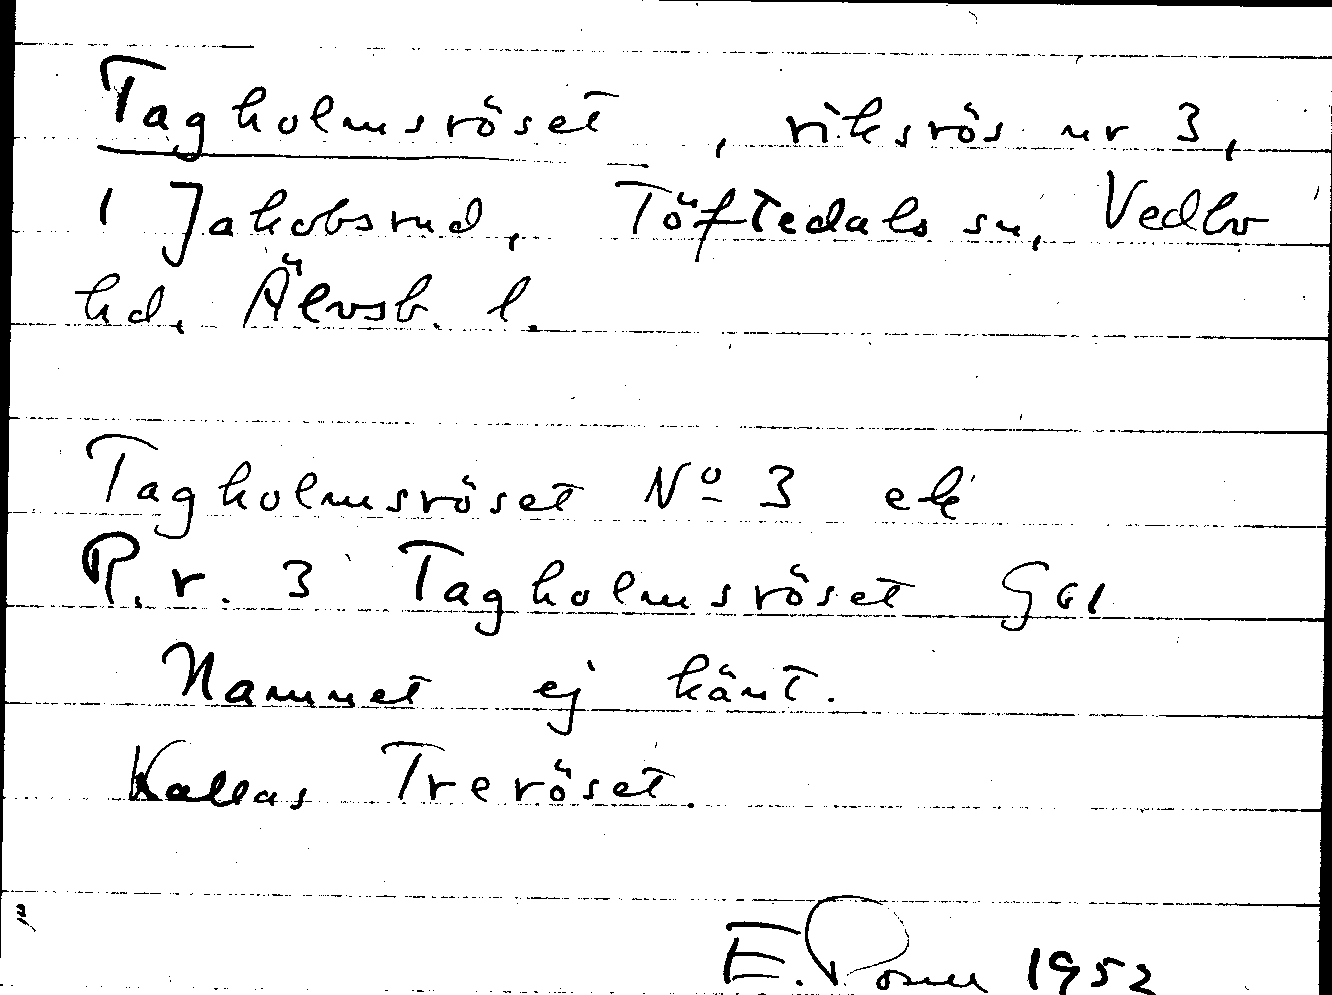 Tagholmsröset, riksrös nr 3,
1 Jakobsrud, Töftedals sn, Vedbo
hd, Älvsb. l.
Tagholmsröset Nº 3 ek
R.r. 3 Tagholmsröset G61
Namnet ej känt.
Kallas Treröset.
E. 1952